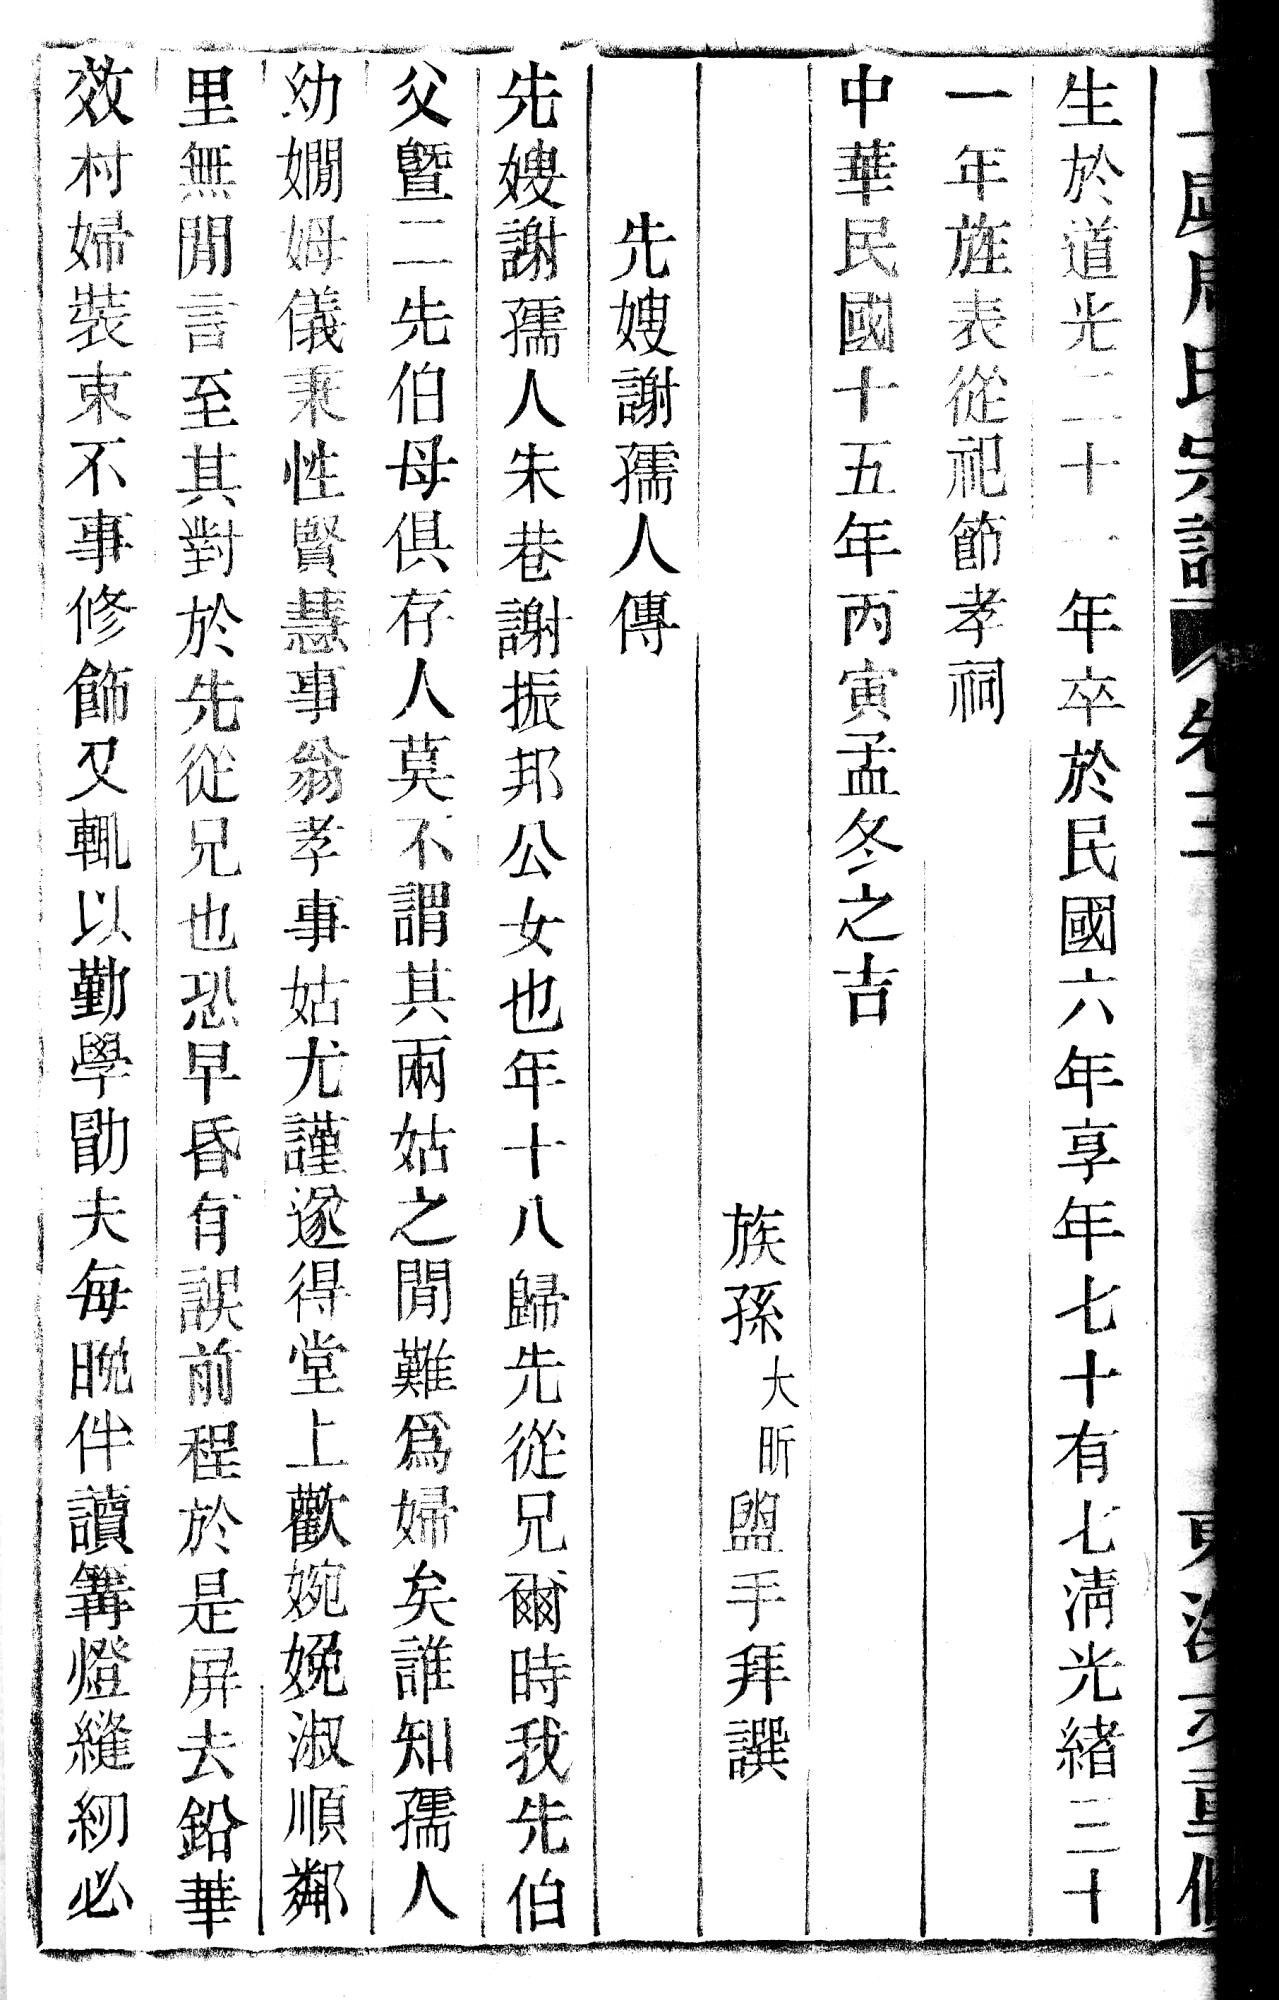 周氏宗譜 卷三 重修
生於道光二十一年卒於民國六年享年七十有七清光緒三十
一年旌表從祀節孝祠
中華民國十五年丙寅孟冬之吉
族孫大昕盥手拜譔
先嫂謝孺人傳
先嫂謝孺人朱巷謝振邦公女也年十八歸先從兄爾時我先伯
父暨二先伯母俱存人莫不謂其兩姑之閒難爲婦矣誰知孺人
幼嫺姆儀秉性賢慧事翁孝事姑尤謹遂得堂上歡婉娩淑順鄰
里無閒言至其對於先從兄也恐早昏有誤前程於是屏去鉛華
效村婦裝束不事修飾又輒以勤學勖夫每晩伴讀篝燈縫紉必